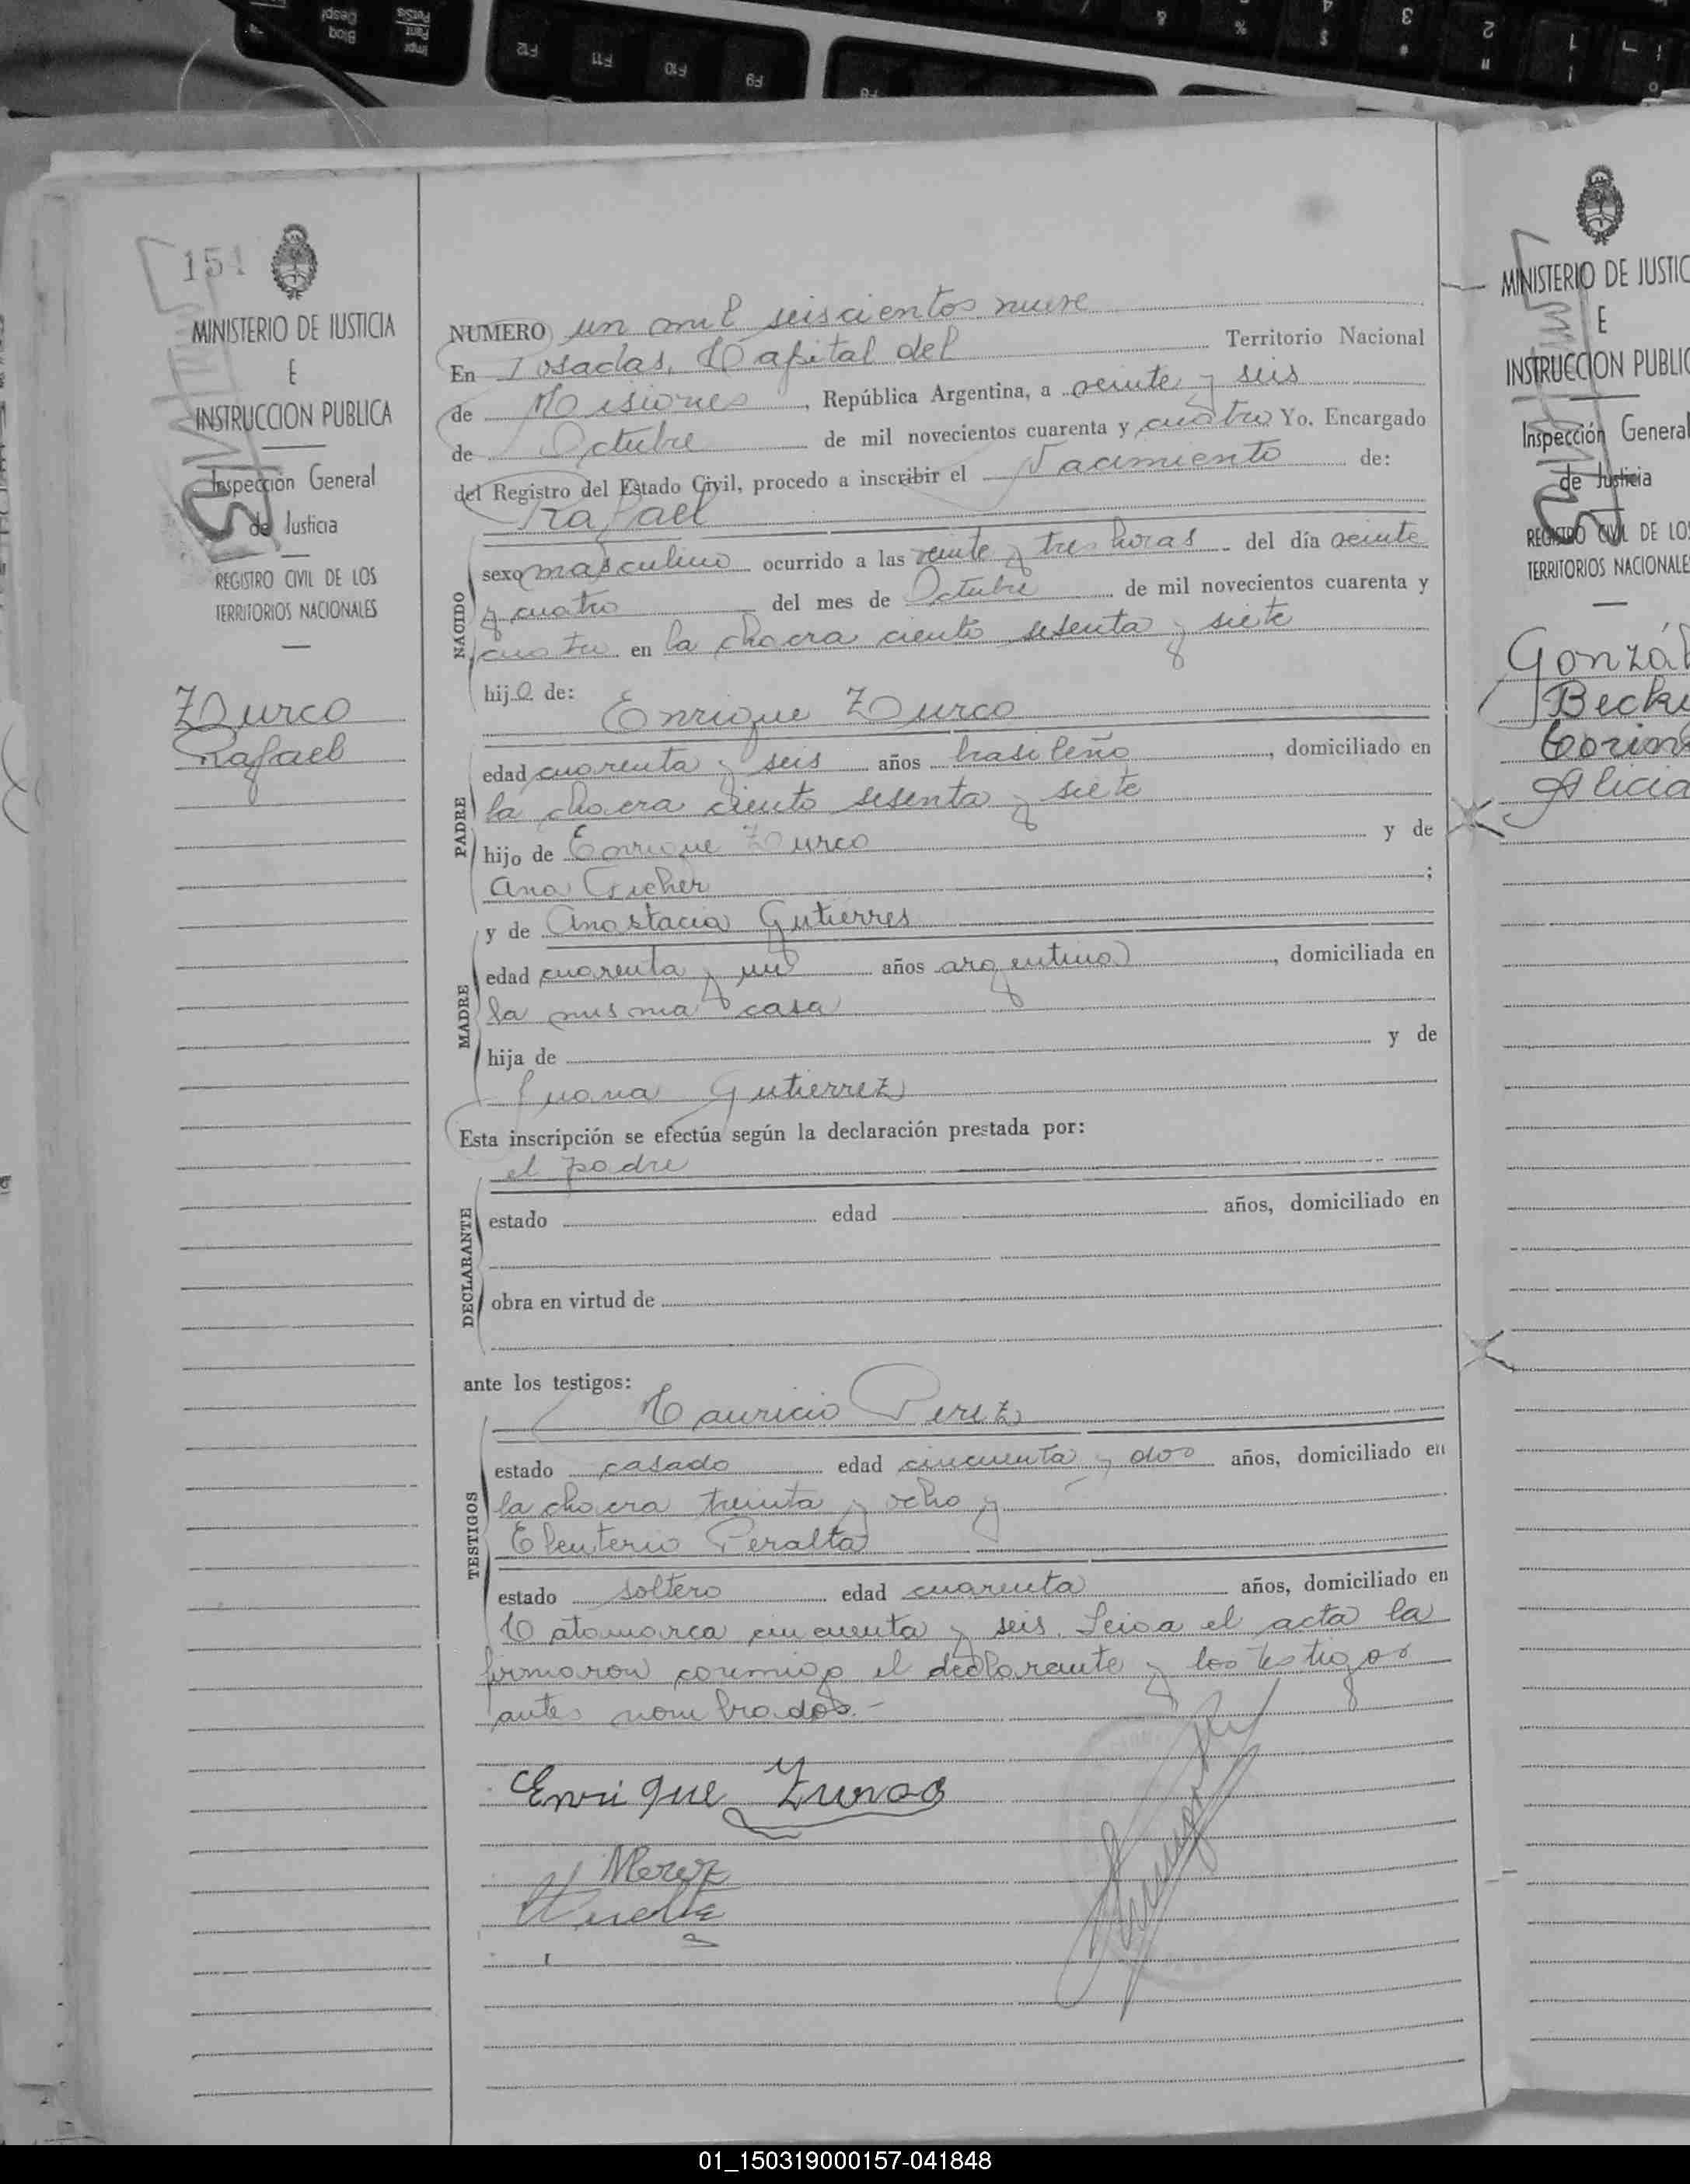 154
MINISTERIO DE JUSTICIA
E
INSTRUCCION PUBLICA
Inspección General
de Justicia
REGISTRO CIVIL DE LOS
TERRITORIOS NACIONALES
Zurco
Rafael
NUMERO un mil seiscientos nueve
En Posadas, Capital del Territorio Nacional
de Misiones, República Argentina, a veinte y seis
de Octubre de mil novecientos cuarenta y cuatro Yo, Encargado
del Registro del Estado Civil, procedo a inscribir el Nacimiento de:
Rafael
NACIDO
sexo masculino ocurrido a las veinte y tres horas del día veinte
y cuatro del mes de Octubre de mil novecientos cuarenta y
cuatro en la chacra ciento sesenta y siete
hijo de:
Enrique Zurco
PADRE
edad cuarenta y seis años brasileño, domiciliado en
la chacra ciento sesenta y siete
hijo de Enrique Zurco y de
Ana ;
y de Anastacia Gutierres
MADRE
edad cuarenta y un años argentina, domiciliada en
la misma casa
hija de y de
Juana Gutierrez
Esta inscripción se efectúa según la declaración prestada por:
el padre
DECLARANTE
estado edad años, domiciliado en
obra en virtud de
ante los testigos:
Mauricio Perez
TESTIGOS
estado casado edad cincuenta y dos años, domiciliado en
la chacra treinta y ocho y
Eleuterio Peralta
estado soltero edad cuarenta años, domiciliado en
Catamarca cincuenta y seis. Leida el acta la
firmaron conmigo el declarante y los testigos
antes nombrados.-
Enrique Zurco
MPerez
MINISTERIO DE JUSTIC
E
INSTRUCCION PUBLIC
Inspección General
de Justicia
REGISTRO CIVIL DE LOS
TERRITORIOS NACIONALE
Gonzál
Alicia
Impr
Pant
PetSis
Bloq
Despl
F12
F11
F10
F9
F8
01_150319000157-041848